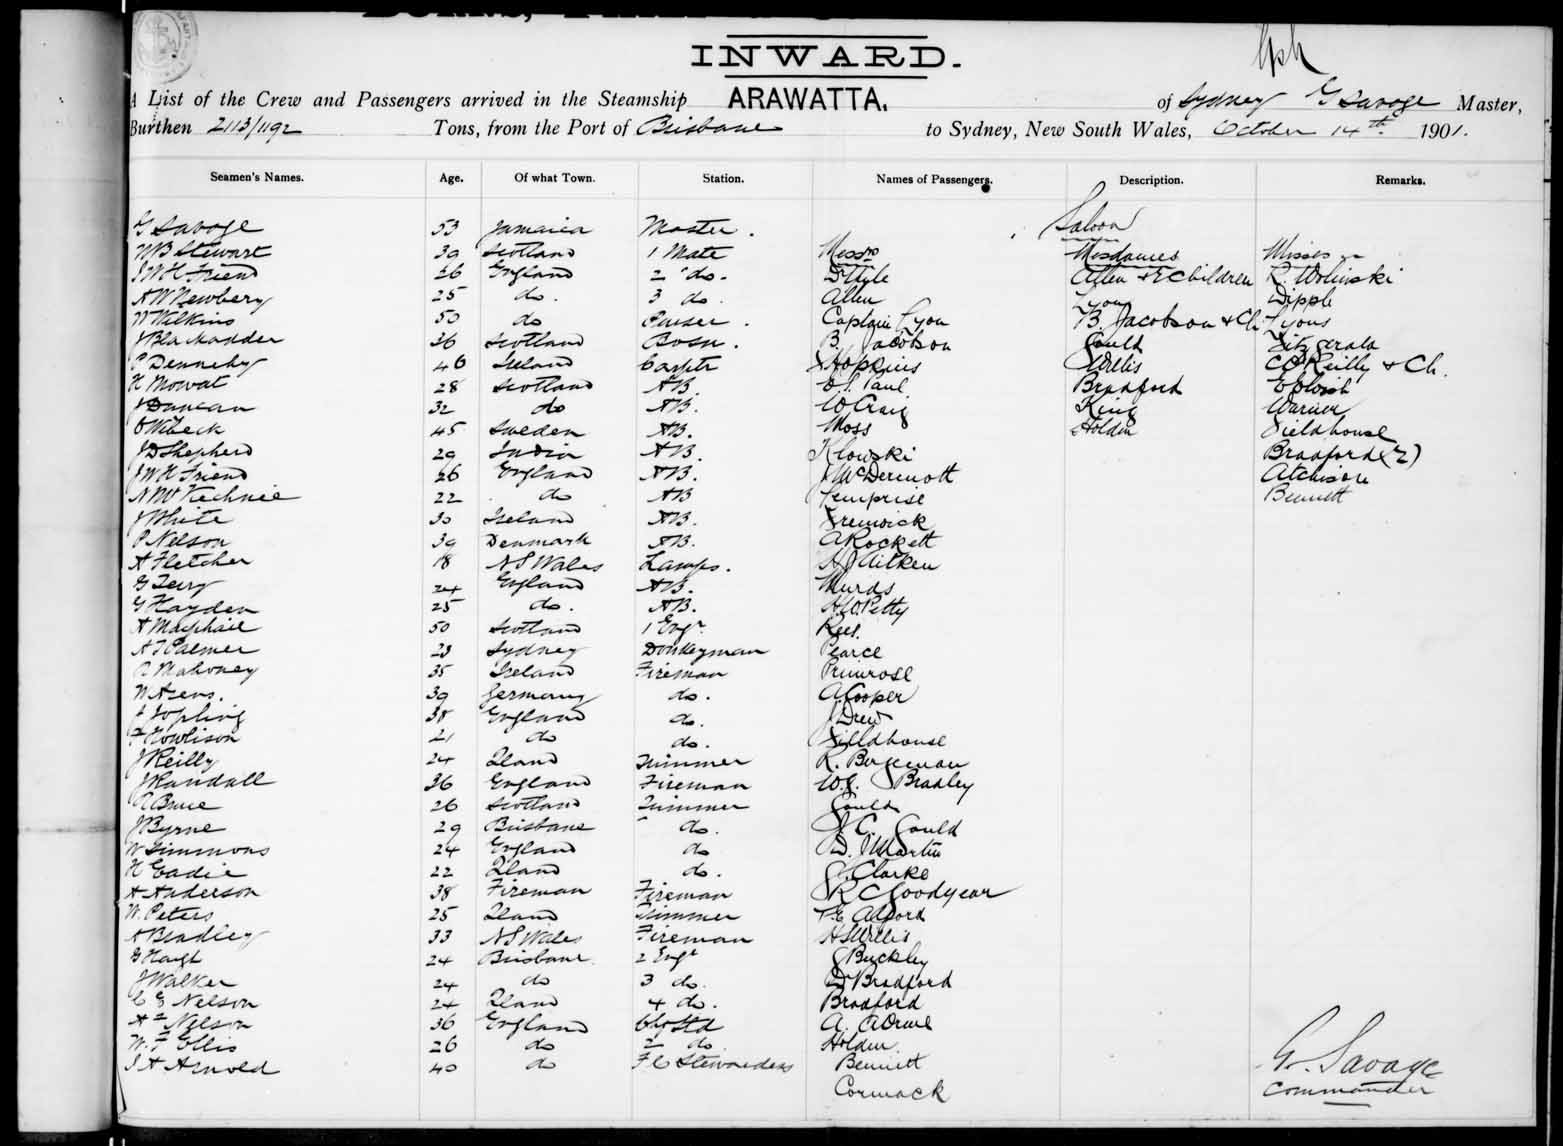 INWARD.
A List of the Crew and Passengers arrived in the Steamship ARAWATTA, of Sydney G Savage Master,
Burthen 2113/1192 Tons, from the Port of Brisbane to Sydney, New South Wales, October 14th 1901.
Seamen's Names. Age. Of what Town. Station. Names of Passengers. Description. Remarks.
G Savage 53 Jamaica Master. Saloon
W B Stewart 39 Scotland 1 Mate Messrs Mesdames Misses
J W H Friend 26 England 2 do. Allen + Children R. Wolinski
A W Newbery 25 do. 3 do. Allen Lyons Dipple
W Wilkins 50 do Purser. Captain Lyon B. Jacobson + Ch Lyons
J Bla Madder 36 Scotland Bosn. B. Jacobson Gould Fitzgerald
P Dennehy 46 Ireland Carptr Hopkins Willis C O'Reilly + Ch.
H Mowat 28 Scotland AB. Paul Bradford
J Duncan 32 do AB. W Craig King Warner
45 Sweden AB. Moss Holden Fieldhouse
J D Shepherd 29 India AB. Klowski Bradford (2)
J W H Friend 26 England AB. J McDermott Atchison
22 do AB Temprise Bennett
J White 30 Ireland AB. Frenwick
P Nelson 39 Denmark AB. A Rockett
A Fletcher 18 N S Wales Lamps. Aitken
G Terry 24 England AB. Murds
G Hayden 25 do. AB. Petty
A Macphail 50 Scotland 1 Engr. Rees.
A J Palmer 23 Sydney Donkeyman Pearce
P Mahoney 35 Ireland Fireman Primrose
W Asens. 39 Germany do. A Cooper
J Jopling 38 England do. J Drew
F Rowlison 21 do do. Fieldhouse
J Reilly 24 Qland Trimmer R. Borgeman
J Randall 36 England Fireman W. J. Bradley
A Bruce 26 Scotland Trimmer Gould
J Byrne 29 Brisbane do. J C. Gould
W Simmons 24 England do D. Martin
H Eadie 22 Qland do. G. Clarke
A Anderson 38 Fireman Fireman R C Goodyear
W. Peters 25 Qland Trimmer Alford
A Bradley 33 N S Wales Fireman H Willis
G Haigh 24 Brisbane. 2 Engr G Buckley
J Walker 24 do 3 do. D Bradford
C G Nelson 24 Qland 4 do. Bradford
Nelson 36 England Chf Std A.
W. F Ellis 26 do 2 do. Holden
J A Arnold 40 do F C Stewardess Bennett
Cormack
G. Savage
Commander